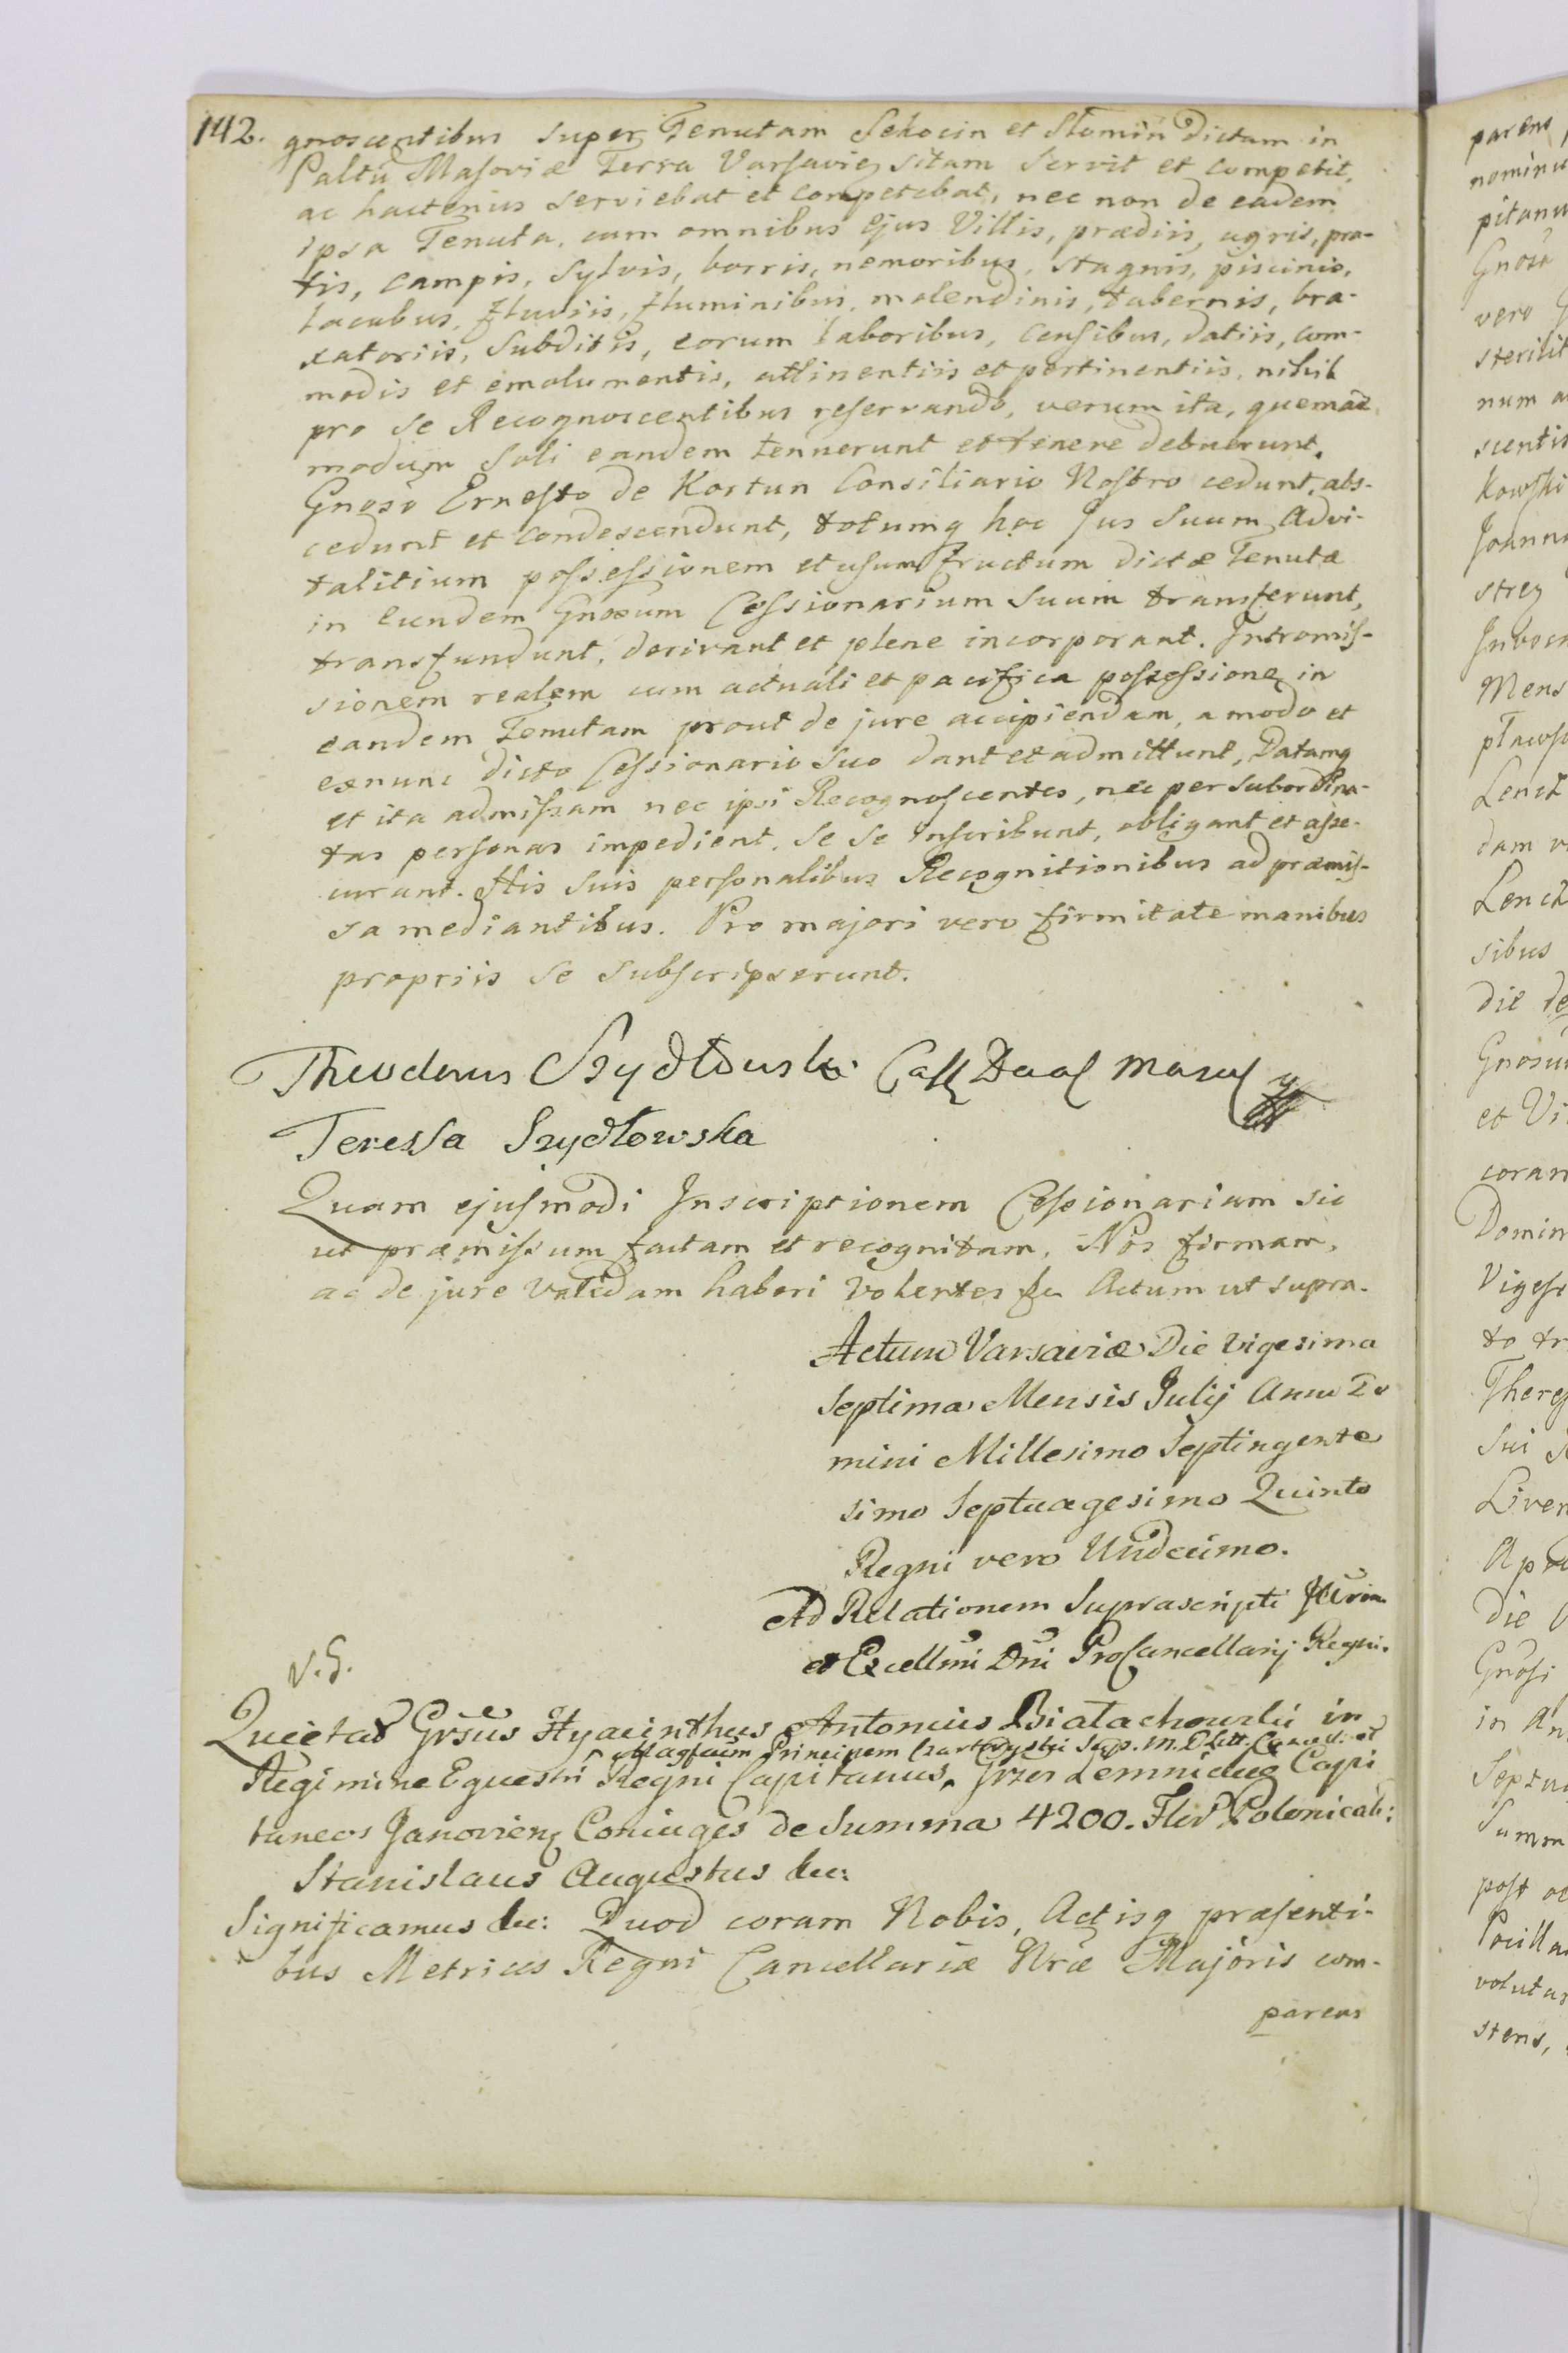 142.
gnoscentibus super Tenutam Sekocin et Słomin dictam in
Paltu Masoviæ Terra Varsavien sitam servit et competit,
ac hactenus serviebat et competebat, nec non de eadem
ipsa Tenuta, cum omnibus ejus Villis, prædiis, agris, pra-
tis, campis, sylvis, borris, nemoribus, stagnis, piscinis,
lacubus, fluviis, fluminibus, molendinis, tabernis, bra-
xatoriis, subditis, eorum laboribus, censibus, datiis, com-
modis et emolumentis, attinentiis et pertinentiis, nihil
pro se Recognoscentibus reservando, verum ita, quemad
modum soli eandem tennerunt et tenere debuerunt,
Gnoso Ernesto de Kortun Consiliario Nostro cedunt, abs-
cedunt et condescendunt, totumq hoc Jus suum Advi-
talitium possessionem et usumfructum dictæ Tenutæ
in eundem Gnosum Cessionarium suum transferunt,
transfundunt, derivant et plene incorporant. Intromis-
sionem realem cum actuali et pacifica possessione in
eandem Tenutam prout de jure accipiendam, a modo et
exnunc dicto Cessionario suo dant et admittunt, Datamq
et ita admissam nec ipsi Recognoscentes, nec per subordina-
tas personas impedient, se se inscribunt, obligant et asse-
curant. His suis personalibus Recognitionibus ad præmis-
sa mediantibus. Pro majori vero firmitate manibus
propriis se subscripserunt.
Theodorus Szydłowski
Teressa Szydłowska
Quam ejusmodi Inscriptionem Cessionariam sic
ut præmissum factam et recognitam, Nos firmam,
ac de jure validam haberi volentes &c Actum ut supra.
Actum Varsaviæ Die vigesima
Septima Mensis Julij Anno Do
mini Millesimo Septingente
simo Septuagesimo Quinto
Regni vero Undecimo.
Ad Relationem Suprascripti
et Excellmi Dni ProCancellarij Regni.
V.G.
Quietat Grsus Hyacinthus Antonius Białachowski in
Principem Czartoryski Sup. M. D. Litt. Cancel. et
Regimine Equestri Regni Capitanus, Grsos Lemnickie Capi
taneos Janovien Coniuges de Summa 4200. Flor Polonicali:
Stanislaus Augustus &c:
Significamus &c: Quod coram Nobis, Actisq præsenti-
bus Metrices Regni Cancellariæ Nræ Majoris com-
parens
parens
nominu
pitanu
Gnoso
vero
sterilit
num
scentis
kowski
Joann
strey
Mens
Lenck
dam
Lenck
sibus
die de
Gnosu
et Vi
coram
Domin
Viges
to tr
Theres
sui
Liven
die
Gnosi
in
Septu
Summ
post
volut
stens,